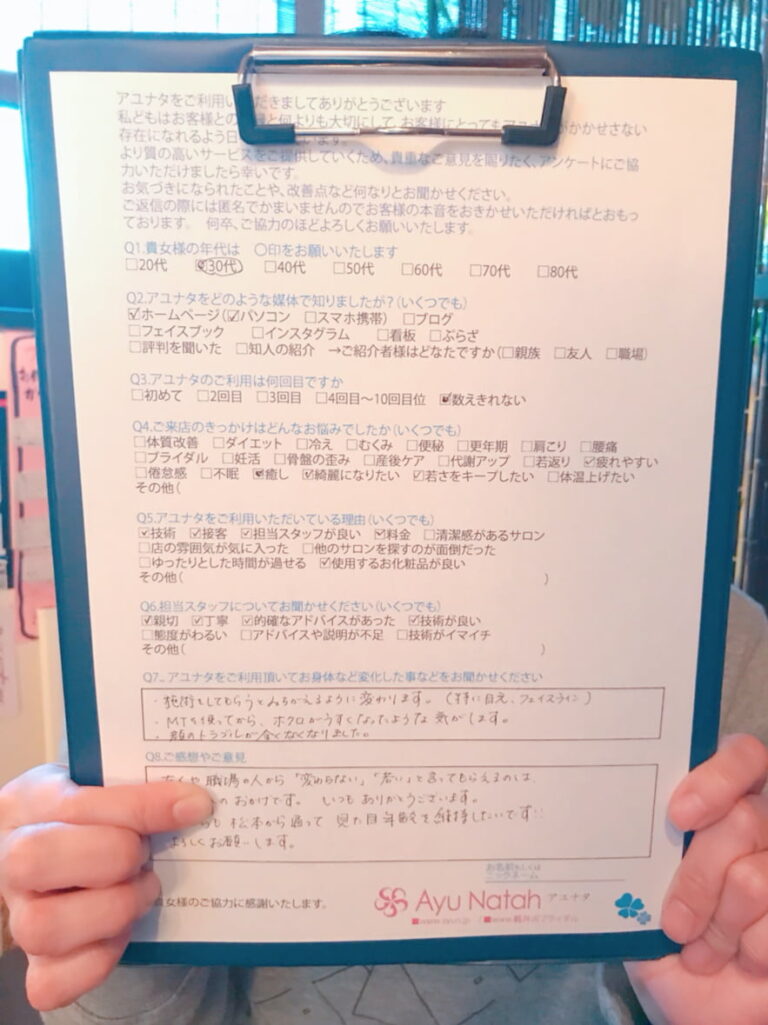 アユナタをご利用い だきましてありがとうございます
私どもはお客様との と何よりも大切にして、お客様にとってもアユ がかかせない
存在になれるよう日 います。
より質の高いサービスをご提供していくため、貴重なご意見を賜りたく、アンケートにご協
力いただけましたら幸いです。
お気づきになられたことや、改善点など何なりとお聞かせください。
ご返信の際には匿名でかまいませんのでお客様の本音をおきかせいただければとおもっ
ております。 何卒、ご協力のほどよろしくお願いいたします。
Q1.貴女様の年代は ○印をお願いいたします
□20代 ☑30代 □40代 □50代 □60代 □70代 □80代
Q2.アユナタをどのような媒体で知りましたが?(いくつでも)
☑ホームページ(☑パソコン □スマホ携帯) □ブログ
□フェイスブック □インスタグラム □看板 □ぷらざ
□評判を聞いた □知人の紹介 →ご紹介者様はどなたですか(□親族 □友人 □職場)
Q3.アユナタのご利用は何回目ですか
□初めて □2回目 □3回目 □4回目~10回目位 ☑数えきれない
Q4.ご来店のきっかけはどんなお悩みでしたか(いくつでも)
□体質改善 □ダイエット □冷え □むくみ □便秘 □更年期 □肩こり □腰痛
□ブライダル □妊活 □骨盤の歪み □産後ケア □代謝アップ □若返り ☑疲れやすい
□倦怠感 □不眠 ☑癒し ☑綺麗になりたい ☑若さをキープしたい □体温上げたい
その他(
Q5.アユナタをご利用いただいている理由(いくつでも)
☑技術 ☑接客 ☑担当スタッフが良い ☑料金 □清潔感があるサロン
□店の雰囲気が気に入った □他のサロンを探すのが面倒だった
□ゆったりとした時間が過せる ☑使用するお化粧品が良い
その他( )
Q6.担当スタッフについてお聞かせください(いくつでも)
☑親切 ☑丁寧 ☑的確なアドバイスがあった ☑技術が良い
□態度がわるい □アドバイスや説明が不足 □技術がイマイチ
その他( )
Q7.. アユナタをご利用頂いてお身体など変化した事などをお聞かせください
・施術をしてもらうとみちがえるように変わります。(特に目元、フェイスライン)
・MTを使ってから、ホクロがうすくなったような気がします。
・顔のトラブルが全くなくなりました。
Q8.ご感想やご意見
友人や職場の人から「変わらない」「若い」と言ってもらえるのは、
のおかげです。 いつもありがとうございます。
らも松本から通って 見た目年齢を維持したいです!!
よろしくお願いします。
お名前もしくは
ニックネーム
貴女様のご協力に感謝いたします。
Ayu Natah アユナタ